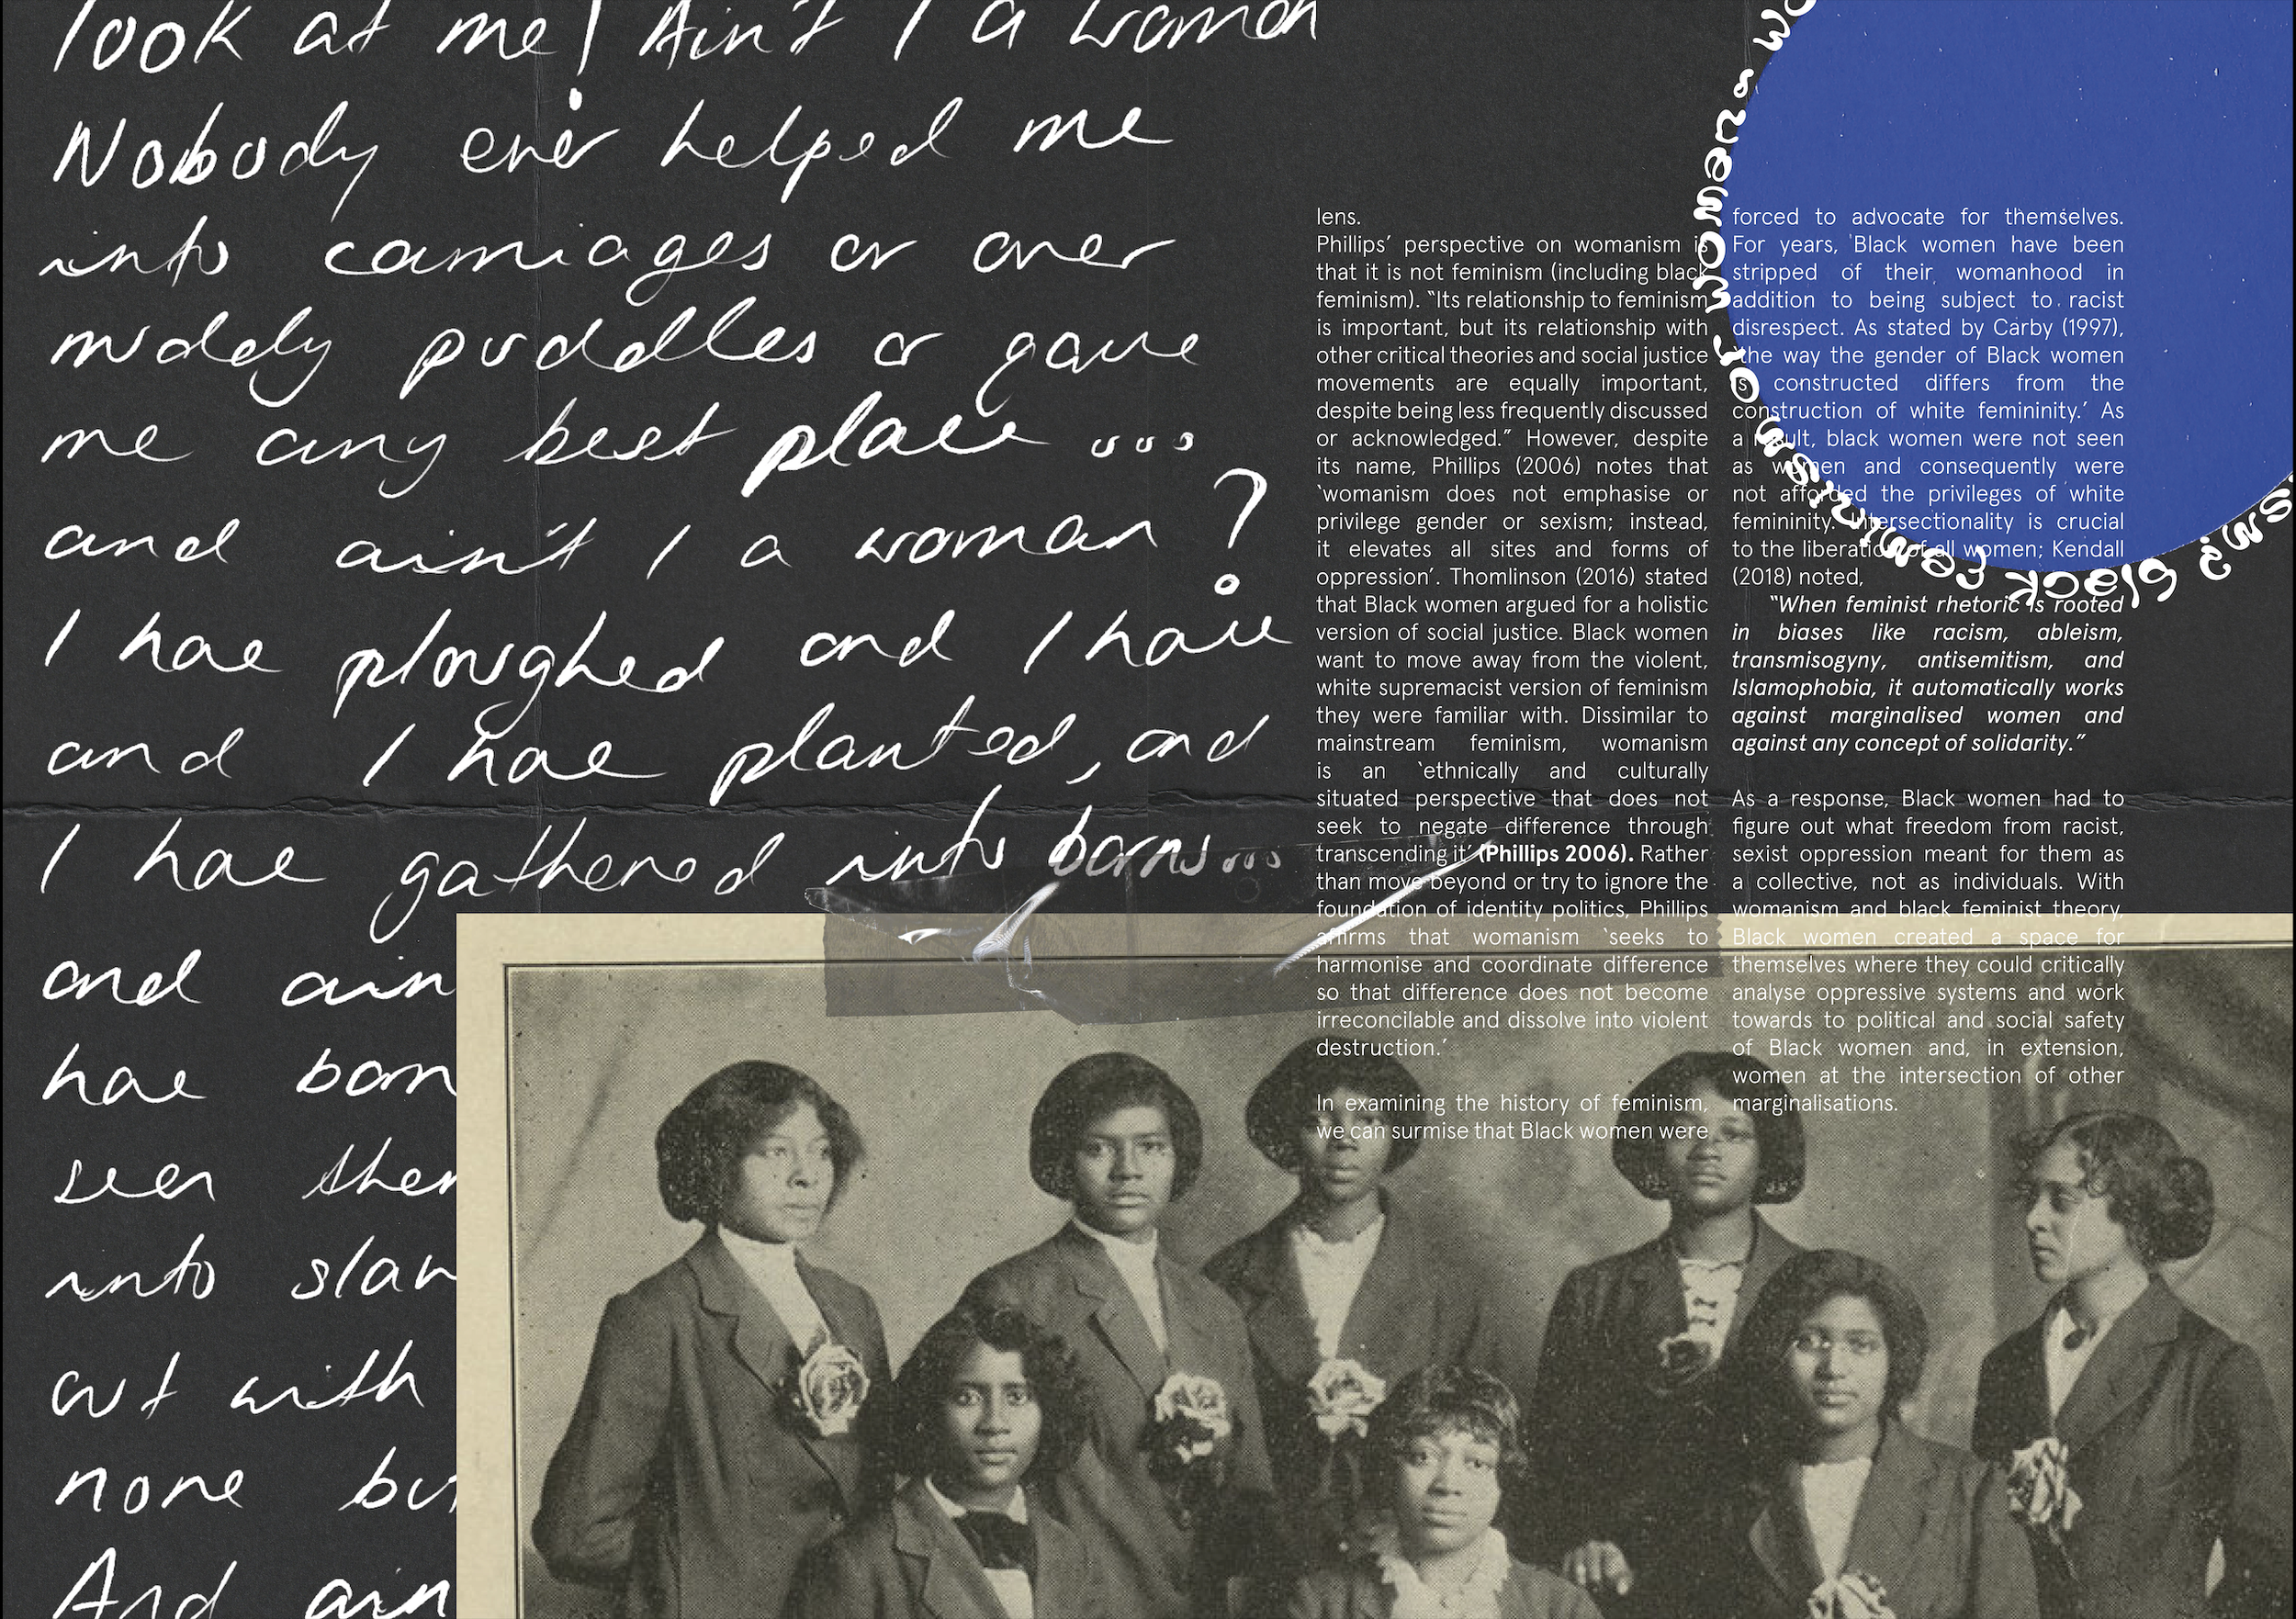 look at me! Ain't I a woman
Nobody ever helped me
into carriages or over
muddy puddles or gave
me any best place ...
and ain't I a woman?
I have ploughed and I have
and I have planted, and
I have gathered into barns...
and ain
have born
seen ther
into slav
out with
none but
And ain
lens.
Phillips' perspective on womanism is
that it is not feminism (including black
feminism). “Its relationship to feminism
is important, but its relationship with
other critical theories and social justice
movements are equally important,
despite being less frequently discussed
or acknowledged.” However, despite
its name, Phillips (2006) notes that
‘womanism does not emphasise or
privilege gender or sexism; instead,
it elevates all sites and forms of
oppression’. Thomlinson (2016) stated
that Black women argued for a holistic
version of social justice. Black women
want to move away from the violent,
white supremacist version of feminism
they were familiar with. Dissimilar to
mainstream feminism, womanism
is an ‘ethnically and culturally
situated perspective that does not
seek to negate difference through
transcending it’ (Phillips 2006). Rather
than move beyond or try to ignore the
foundation of identity politics, Phillips
affirms that womanism ‘seeks to
harmonise and coordinate difference
so that difference does not become
irreconcilable and dissolve into violent
destruction.’
In examining the history of feminism,
we can surmise that Black women were
forced to advocate for themselves.
For years, Black women have been
stripped of their womanhood in
addition to being subject to racist
disrespect. As stated by Carby (1997),
‘the way the gender of Black women
is constructed differs from the
construction of white femininity.’ As
a result, black women were not seen
as women and consequently were
not afforded the privileges of white
femininity. Intersectionality is crucial
to the liberation of all women; Kendall
(2018) noted,
“When feminist rhetoric is rooted
in biases like racism, ableism,
transmisogyny, antisemitism, and
Islamophobia, it automatically works
against marginalised women and
against any concept of solidarity.”
As a response, Black women had to
figure out what freedom from racist,
sexist oppression meant for them as
a collective, not as individuals. With
womanism and black feminist theory,
Black women created a space for
themselves where they could critically
analyse oppressive systems and work
towards to political and social safety
of Black women and, in extension,
women at the intersection of other
marginalisations.
women or black feminism